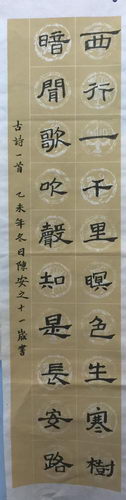 西行一千里暝色生寒樹
暗聞歌吹聲知是長安路
古詩一首 乙未年冬日陳安之十一歲書